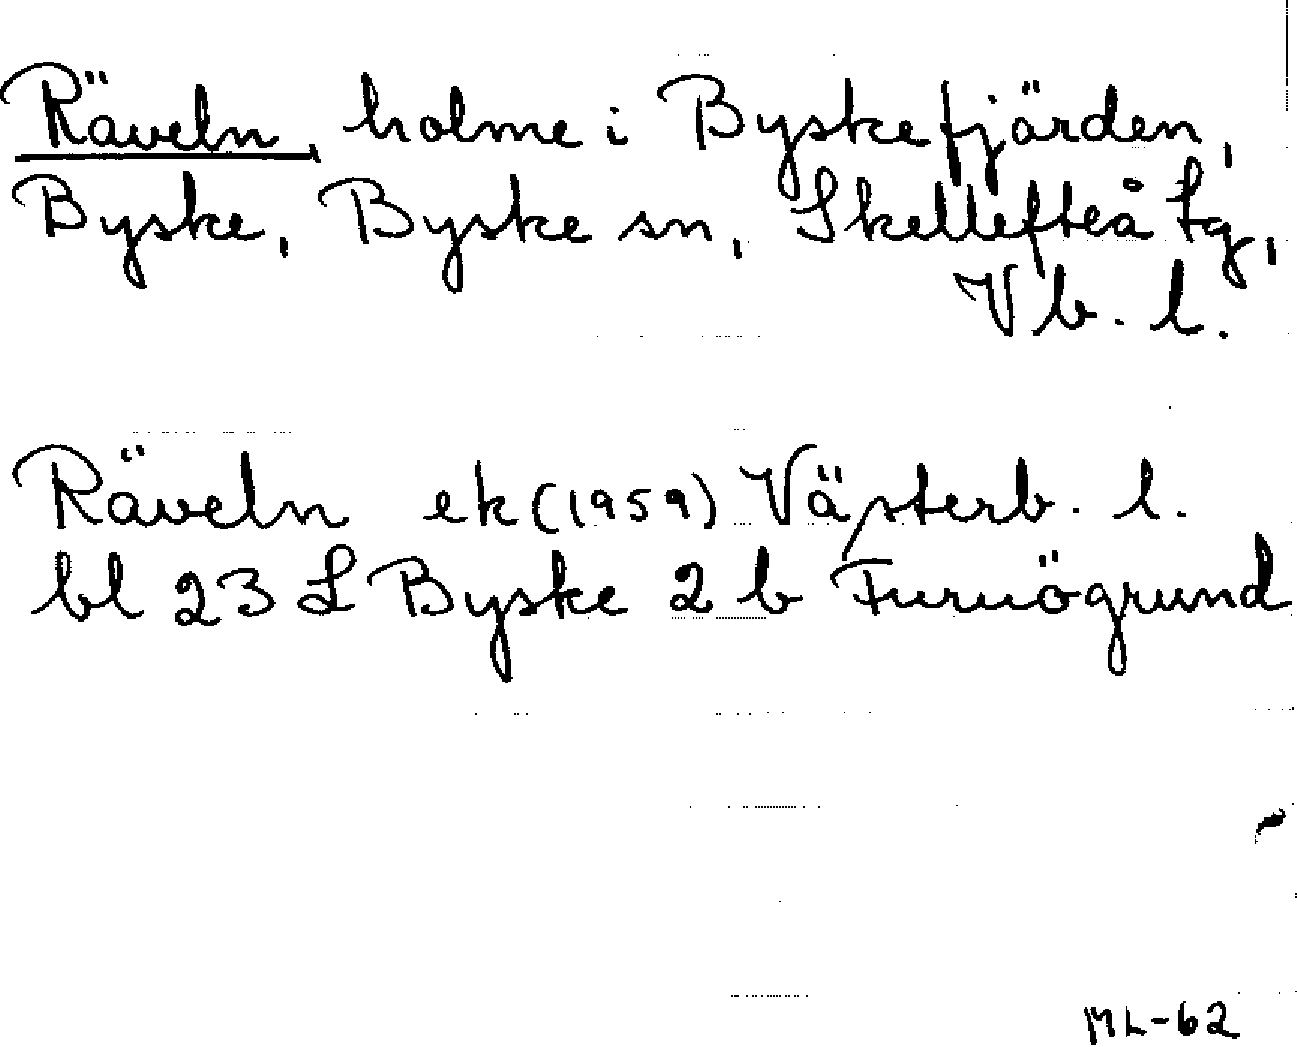 Räveln, holme i Byskefjärden,
Byske, Byske sn, Skellefteå tg,
Vb. l.
Räveln ek (1959) Västerb. l.
bl 23 L Byske 2 b Furuögrund
ML-62